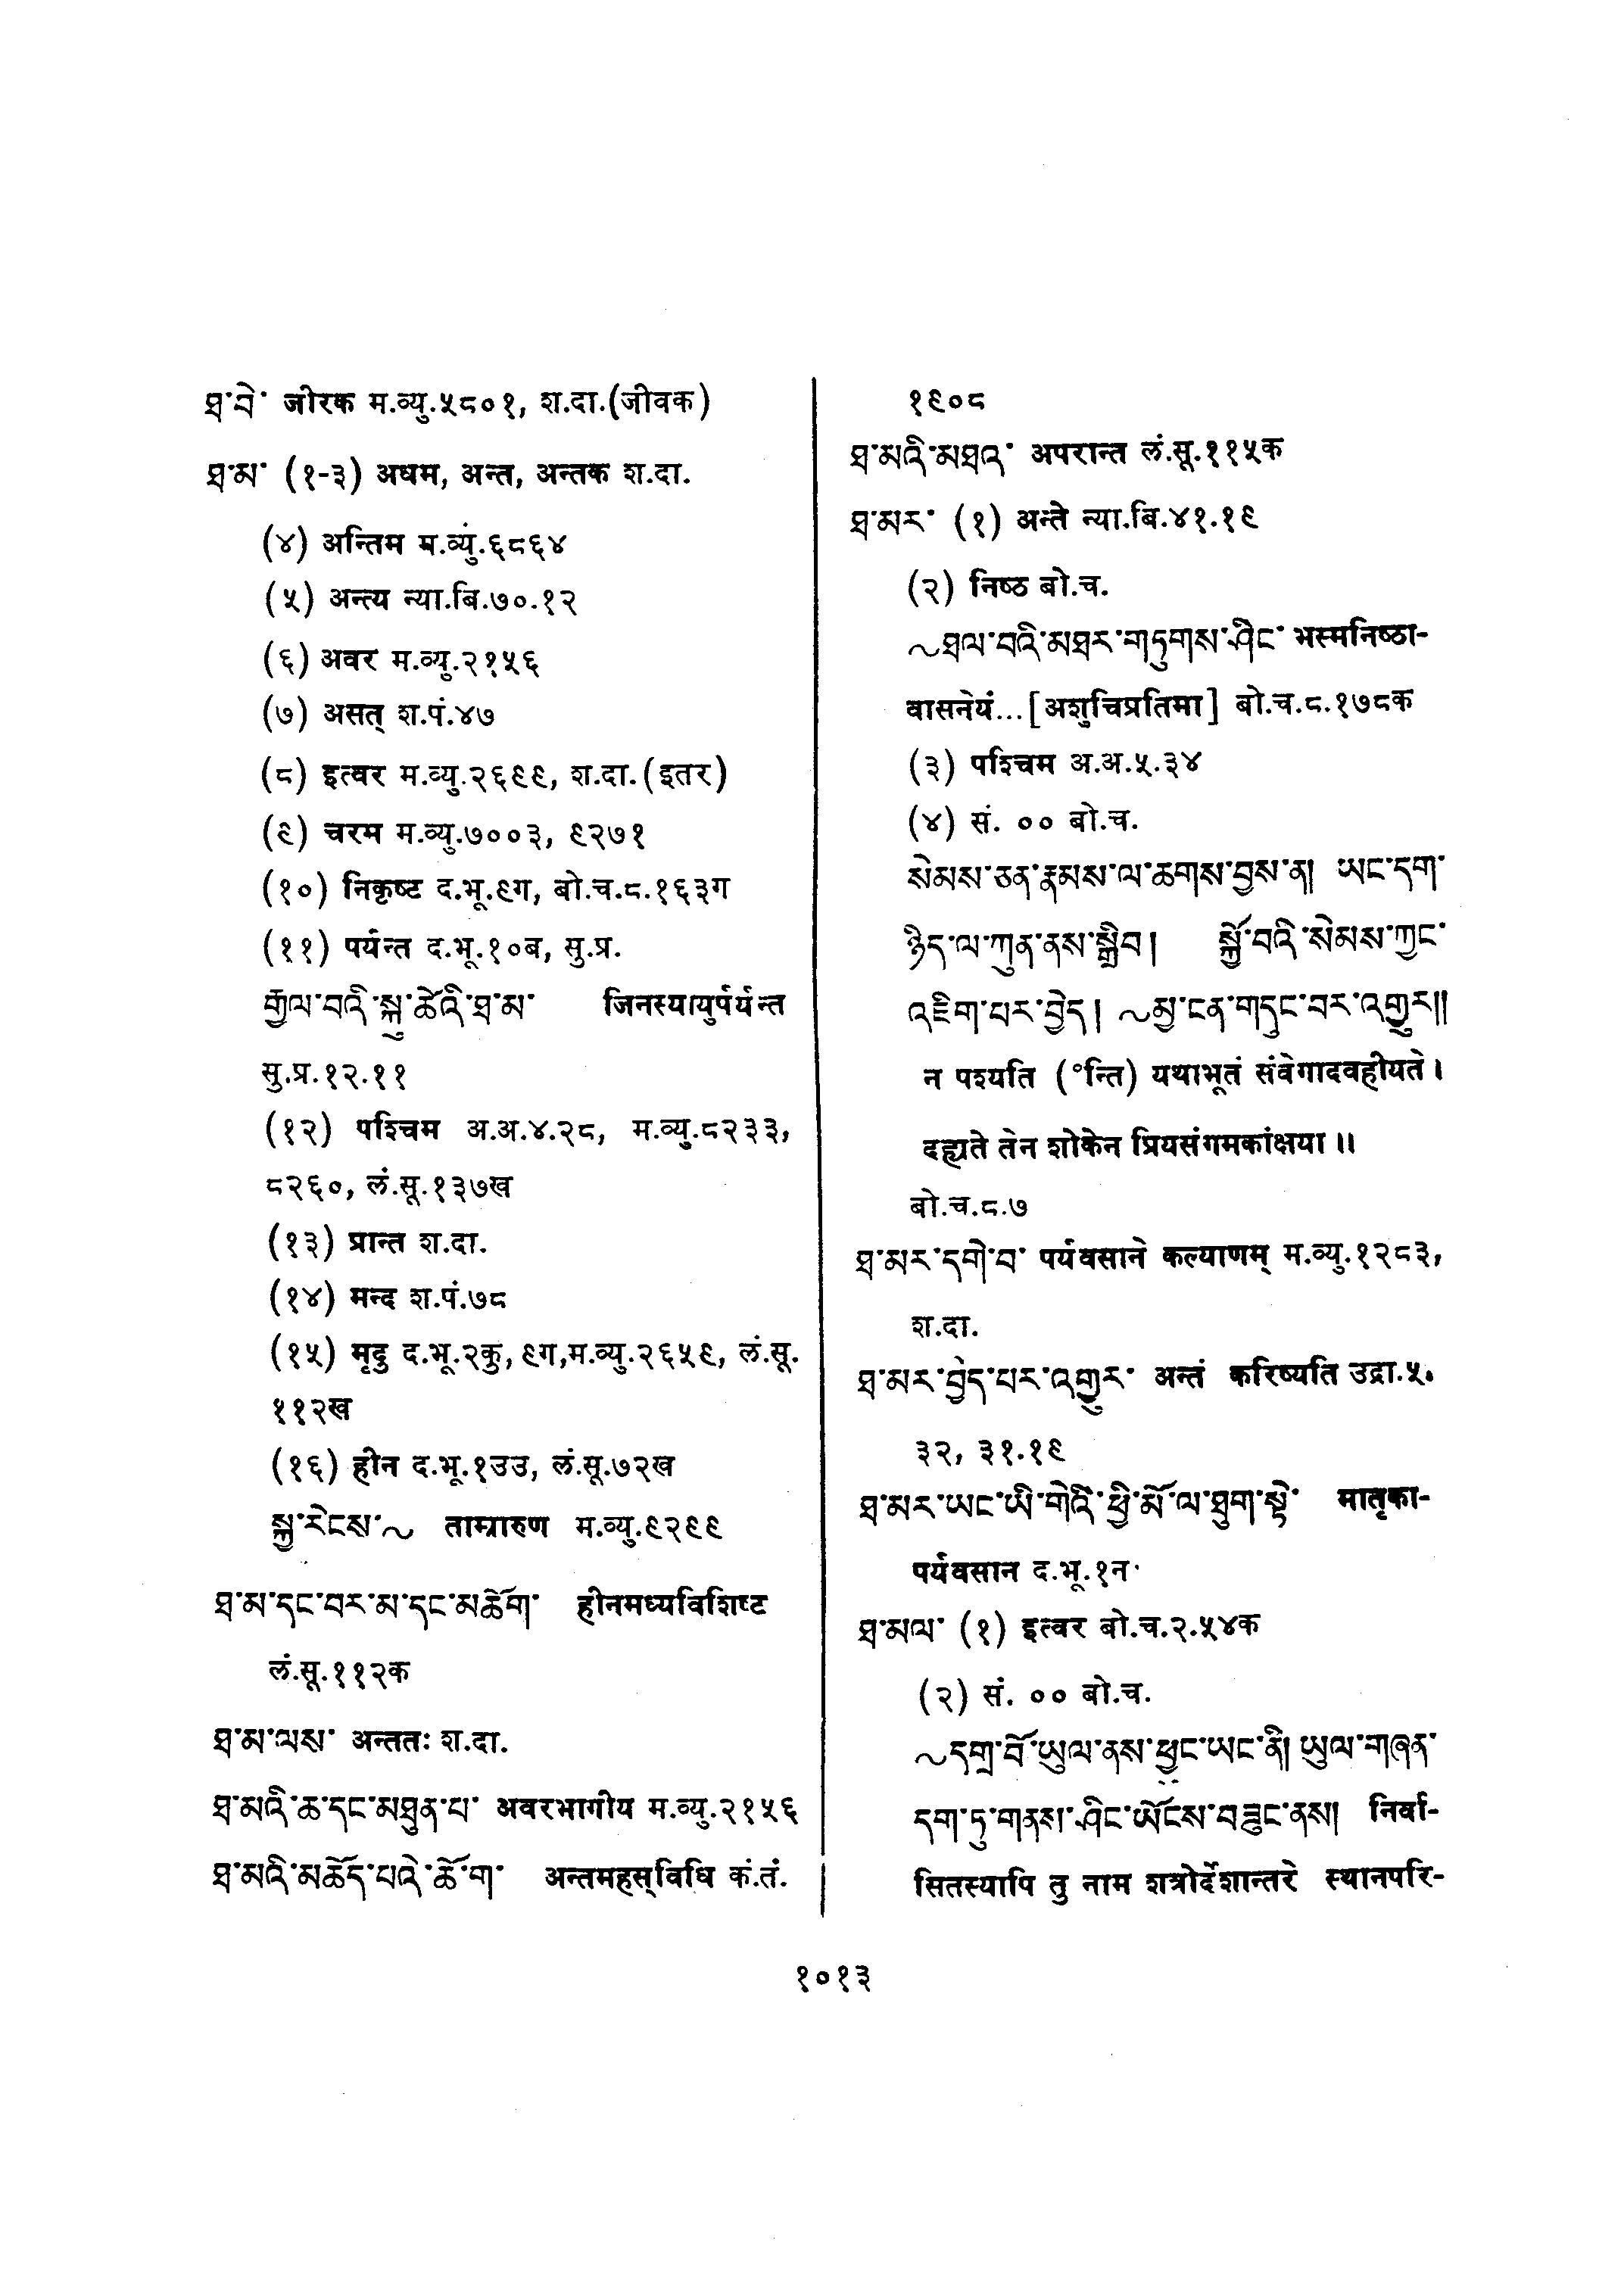 ཐ་བེ་ जीरक म.व्यु.५८०१, श.दा.(जीवक)
ཐ་མ་ (१-३) अधम, अन्त, अन्तक श.दा.
(४) अन्तिम म.व्युं.६८६४
(५) अन्त्य न्या.बि.७०.१२
(६) अवर म.व्यु.२१५६
(७) असत् श.पं.४७
(८) इत्वर म.व्यु.२६९९, श.दा.(इतर)
(९) चरम म.व्यु.७००३, ९२७१
(१०) निकृष्ट द.भू.९ग, बो.च.८.१६३ग
(११) पर्यन्त द.भू.१०ब, सु.प्र.
རྒྱལ་བའི་སྐུ་ཚེའི་ཐ་མ་ जिनस्यायुर्पर्यन्त
सु.प्र.१२.११
(१२) पश्चिम अ.अ.४.२८, म.व्यु.८२३३,
८२६०, लं.सू.१३७ख
(१३) प्रान्त श.दा.
(१४) मन्द श.पं.७८
(१५) मृदु द.भू.२कु, ९ग,म.व्यु.२६५९, लं.सू.
११२ख
(१६) हीन द.भू.१उउ, लं.सू.७२ख
སྐྱ་རེངས་~ ताम्रारुण म.व्यु.९२९९
ཐ་མ་དང་བར་མ་དང་མཆོག་ हीनमध्यविशिष्ट
लं.सू.११२क
ཐ་མ་ལས་ अन्ततः श.दा.
ཐ་མའི་ཆ་དང་མཐུན་པ་ अवरभागीय म.व्यु.२१५६
ཐ་མའི་མཆོད་པའི་ཆོ་ག་ अन्तमहस्‌विधि कं.तं.
१९०८
ཐ་མའི་མཐའ་ अपरान्त लं.सू.११५क
ཐ་མར་ (१) अन्ते न्या.बि.४१.१९
(२) निष्ठ बो.च.
~ཐལ་བའི་མཐར་གཏུགས་ཤིང་ भस्मनिष्ठा-
वासनेयं...[अशुचिप्रतिमा] बो.च.८.१७८क
(३) पश्चिम अ.अ.५.३४
(४) सं. ०० बो.च.
སེམས་ཅན་རྣམས་ལ་ཆགས་བྱས་ན། ཡང་དག་
ཉིད་ལ་ཀུན་ནས་སྒྲིབ། སྐྱོ་བའི་སེམས་ཀྱང་
འཇིག་པར་བྱེད། ~མྱ་ངན་གདུང་བར་འགྱུར།།
न पश्यति (°न्ति) यथाभूतं संवेगादवहीयते।
दह्यते तेन शोकेन प्रियसंगमकांक्षया॥
बो.च.८.७
ཐ་མར་དགེ་བ་ पर्यवसाने कल्याणम् म.व्यु.१२८३,
श.दा.
ཐ་མར་བྱེད་པར་འགྱུར་ अन्तं करिष्यति उद्रा.५.
३२, ३१.१९
ཐ་མར་ཡང་ཡི་གེའི་ཕྱི་མོ་ལ་ཐུག་སྟེ་ मातृका-
पर्यवसान द.भू.१न
ཐ་མལ་ (१) इत्वर बो.च.२.५४क
(२) सं. ०० बो.च.
~དགྲ་བོ་ཡུལ་ནས་ཕྱུང་ཡང་ནི། ཡུལ་གཞན་
དག་ཏུ་གནས་ཤིང་ཡོངས་བཟུང་ནས། निर्वा-
सितस्यापि तु नाम शत्रोर्देशान्तरे स्थानपरि-
१०१३